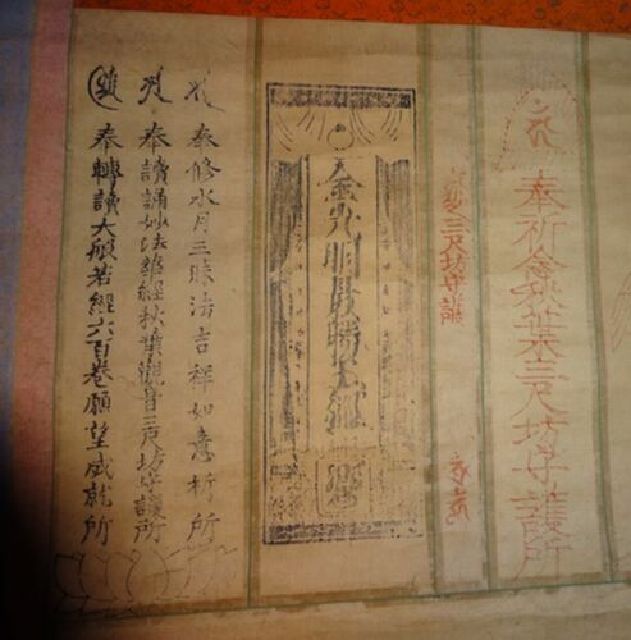 奉祈念秋葉大三尺坊守護所
三尺坊守護
金光明最勝王經
奉修水月三昧法吉祥如意祈所
奉讀誦妙法華經秋葉觀音三尺坊守護所
奉轉讀大般若經六百卷願望成就所